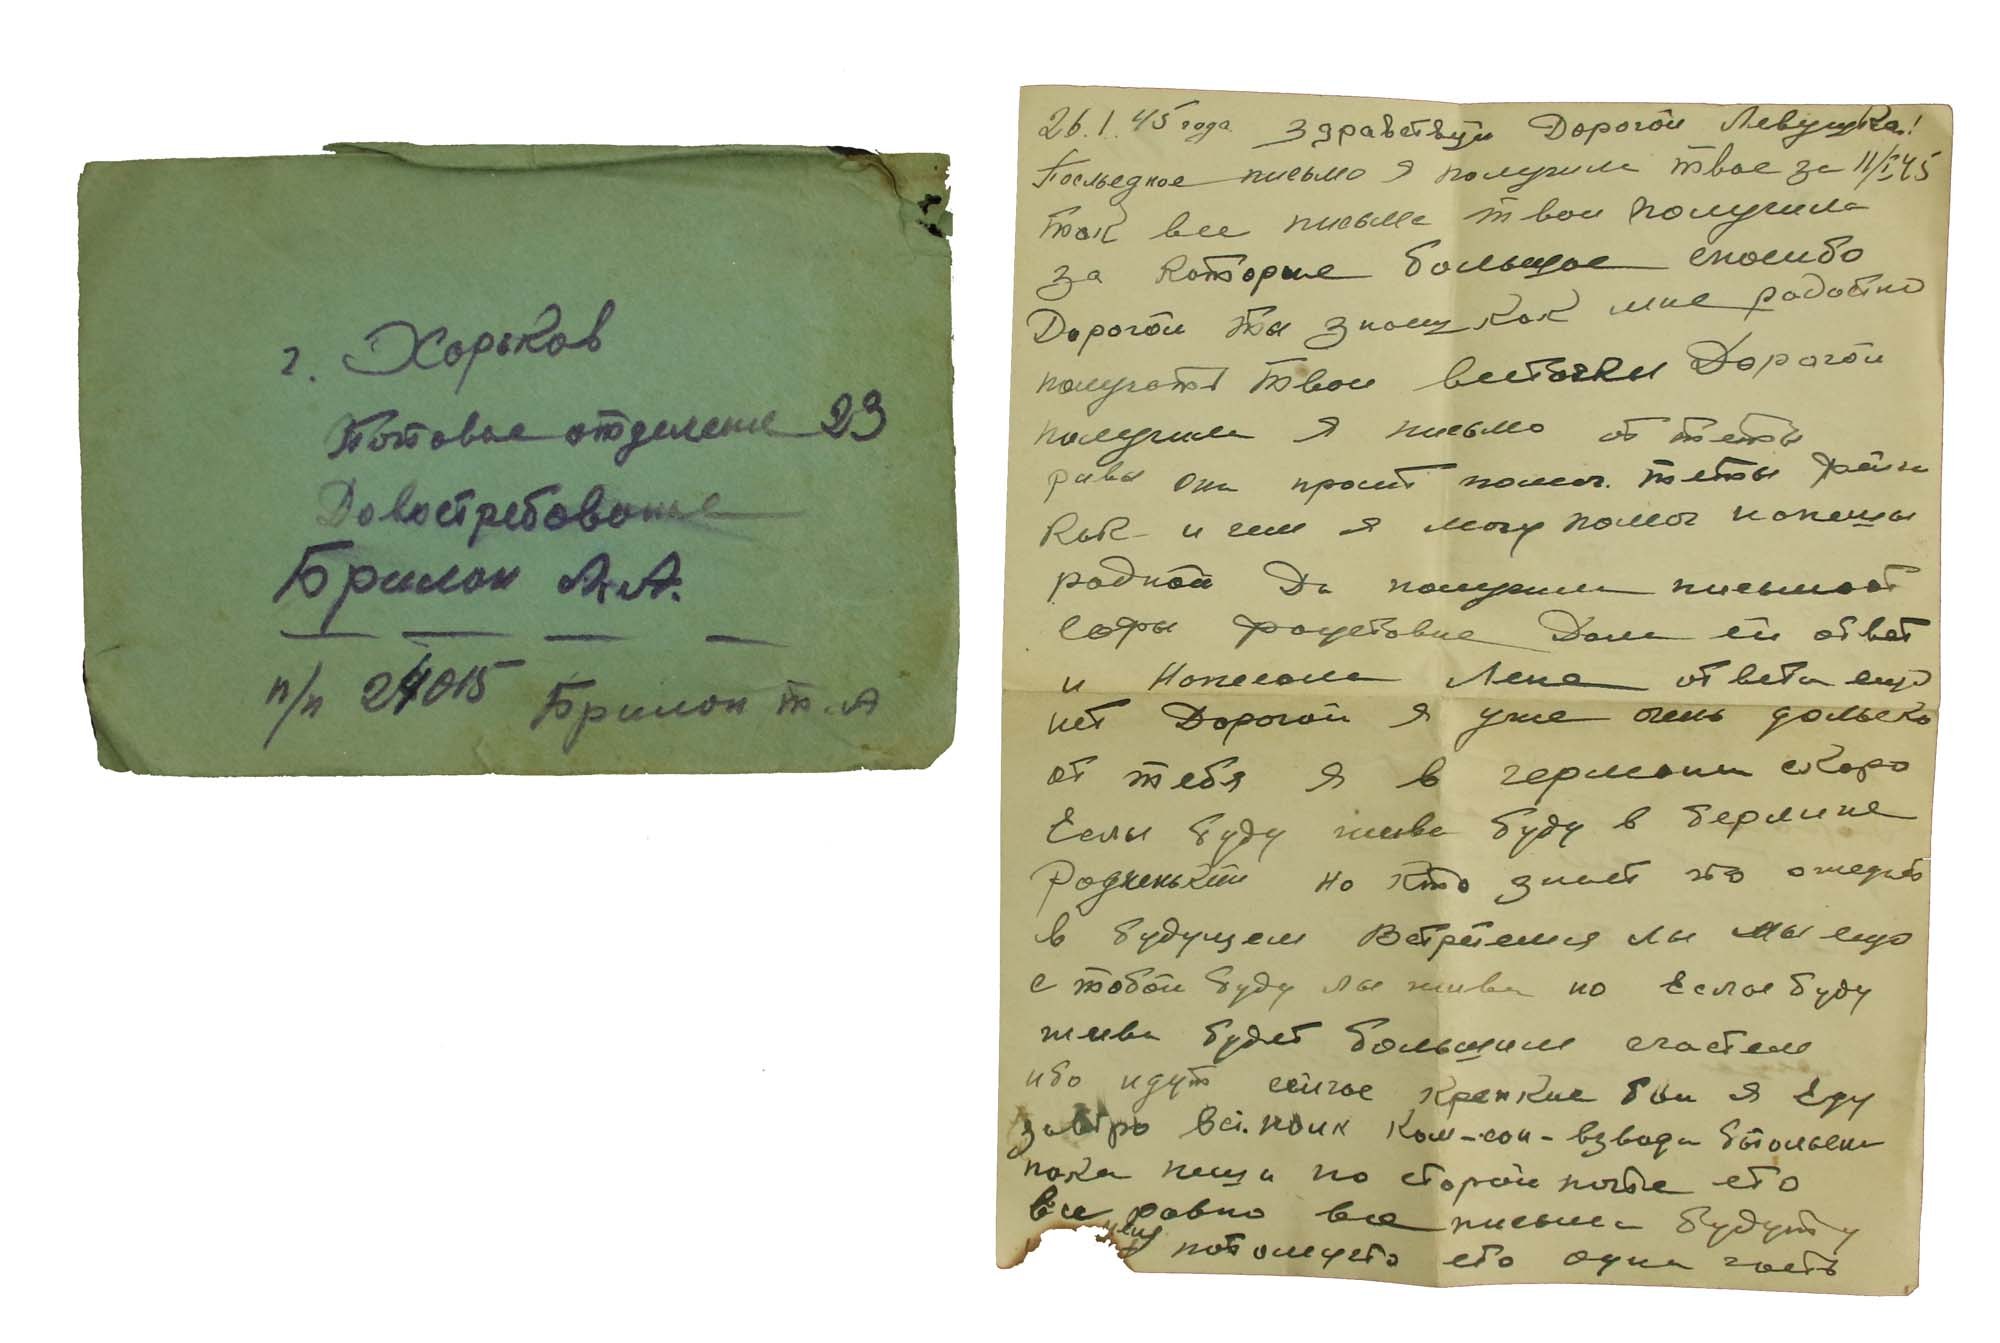 г. Харьков
Почтовое отделение 23
Довостребование
Брилон А.А.
п/п 24015 Брилон Т.А
26.1.45 года Здравствуй Дорогой Левушка!
Последное письмо я получила твое за 11/I 45
так все письма твои получила
за которые большое спосибо
Дорогой ты знаеш как мне радостно
получать твои весточки Дорогой
получила я письмо от тети
ривы она просит помоч. тети
как и чем я могу помоч напеши
родной Да получила письмо от
Софы Дала ей ответ
и Написала Лене ответа ещо
нет Дорогой я уже очень дольеко
от тебя я в германии скоро
Если буду жива буду в берлине
Родненький но кто знает что ожедает
в будущем Встретемся ли мы ещо
с тобой буду ли жива но Если буду
жива будет большим счастем
ибо идут сейчас крепкие бои я Еду
завтро Ком-сан-взвода батольена
пока пеши по старой почте ето
все равно все письма будут у
потомучто ето одна часть